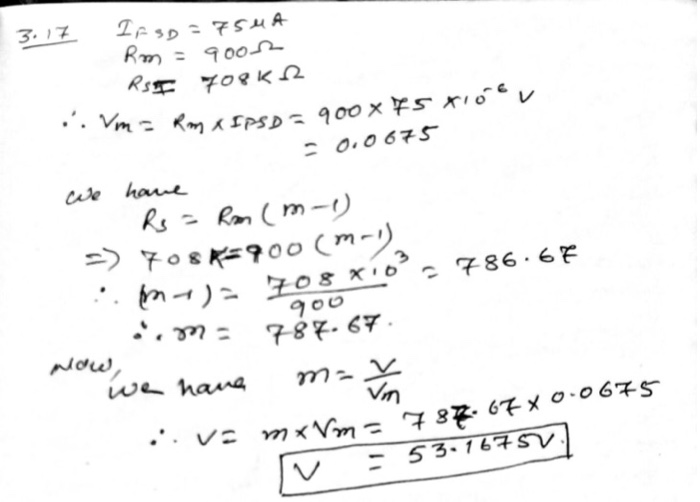 3.17 IFSD = 75μA
Rm = 900Ω
Rs = 708KΩ
∴ Vm = Rm x IFSD = 900 x 75 x 10⁻⁶ V
= 0.0675
We have
Rs = Rm (m-1)
=> 708K = 900 (m-1)
∴ (m-1) = 708 x 10³ / 900 = 786.67
∴ m = 787.67.
Now,
we have m = V / Vm
∴ V = m x Vm = 787.67 x 0.0675
V = 53.1675V.